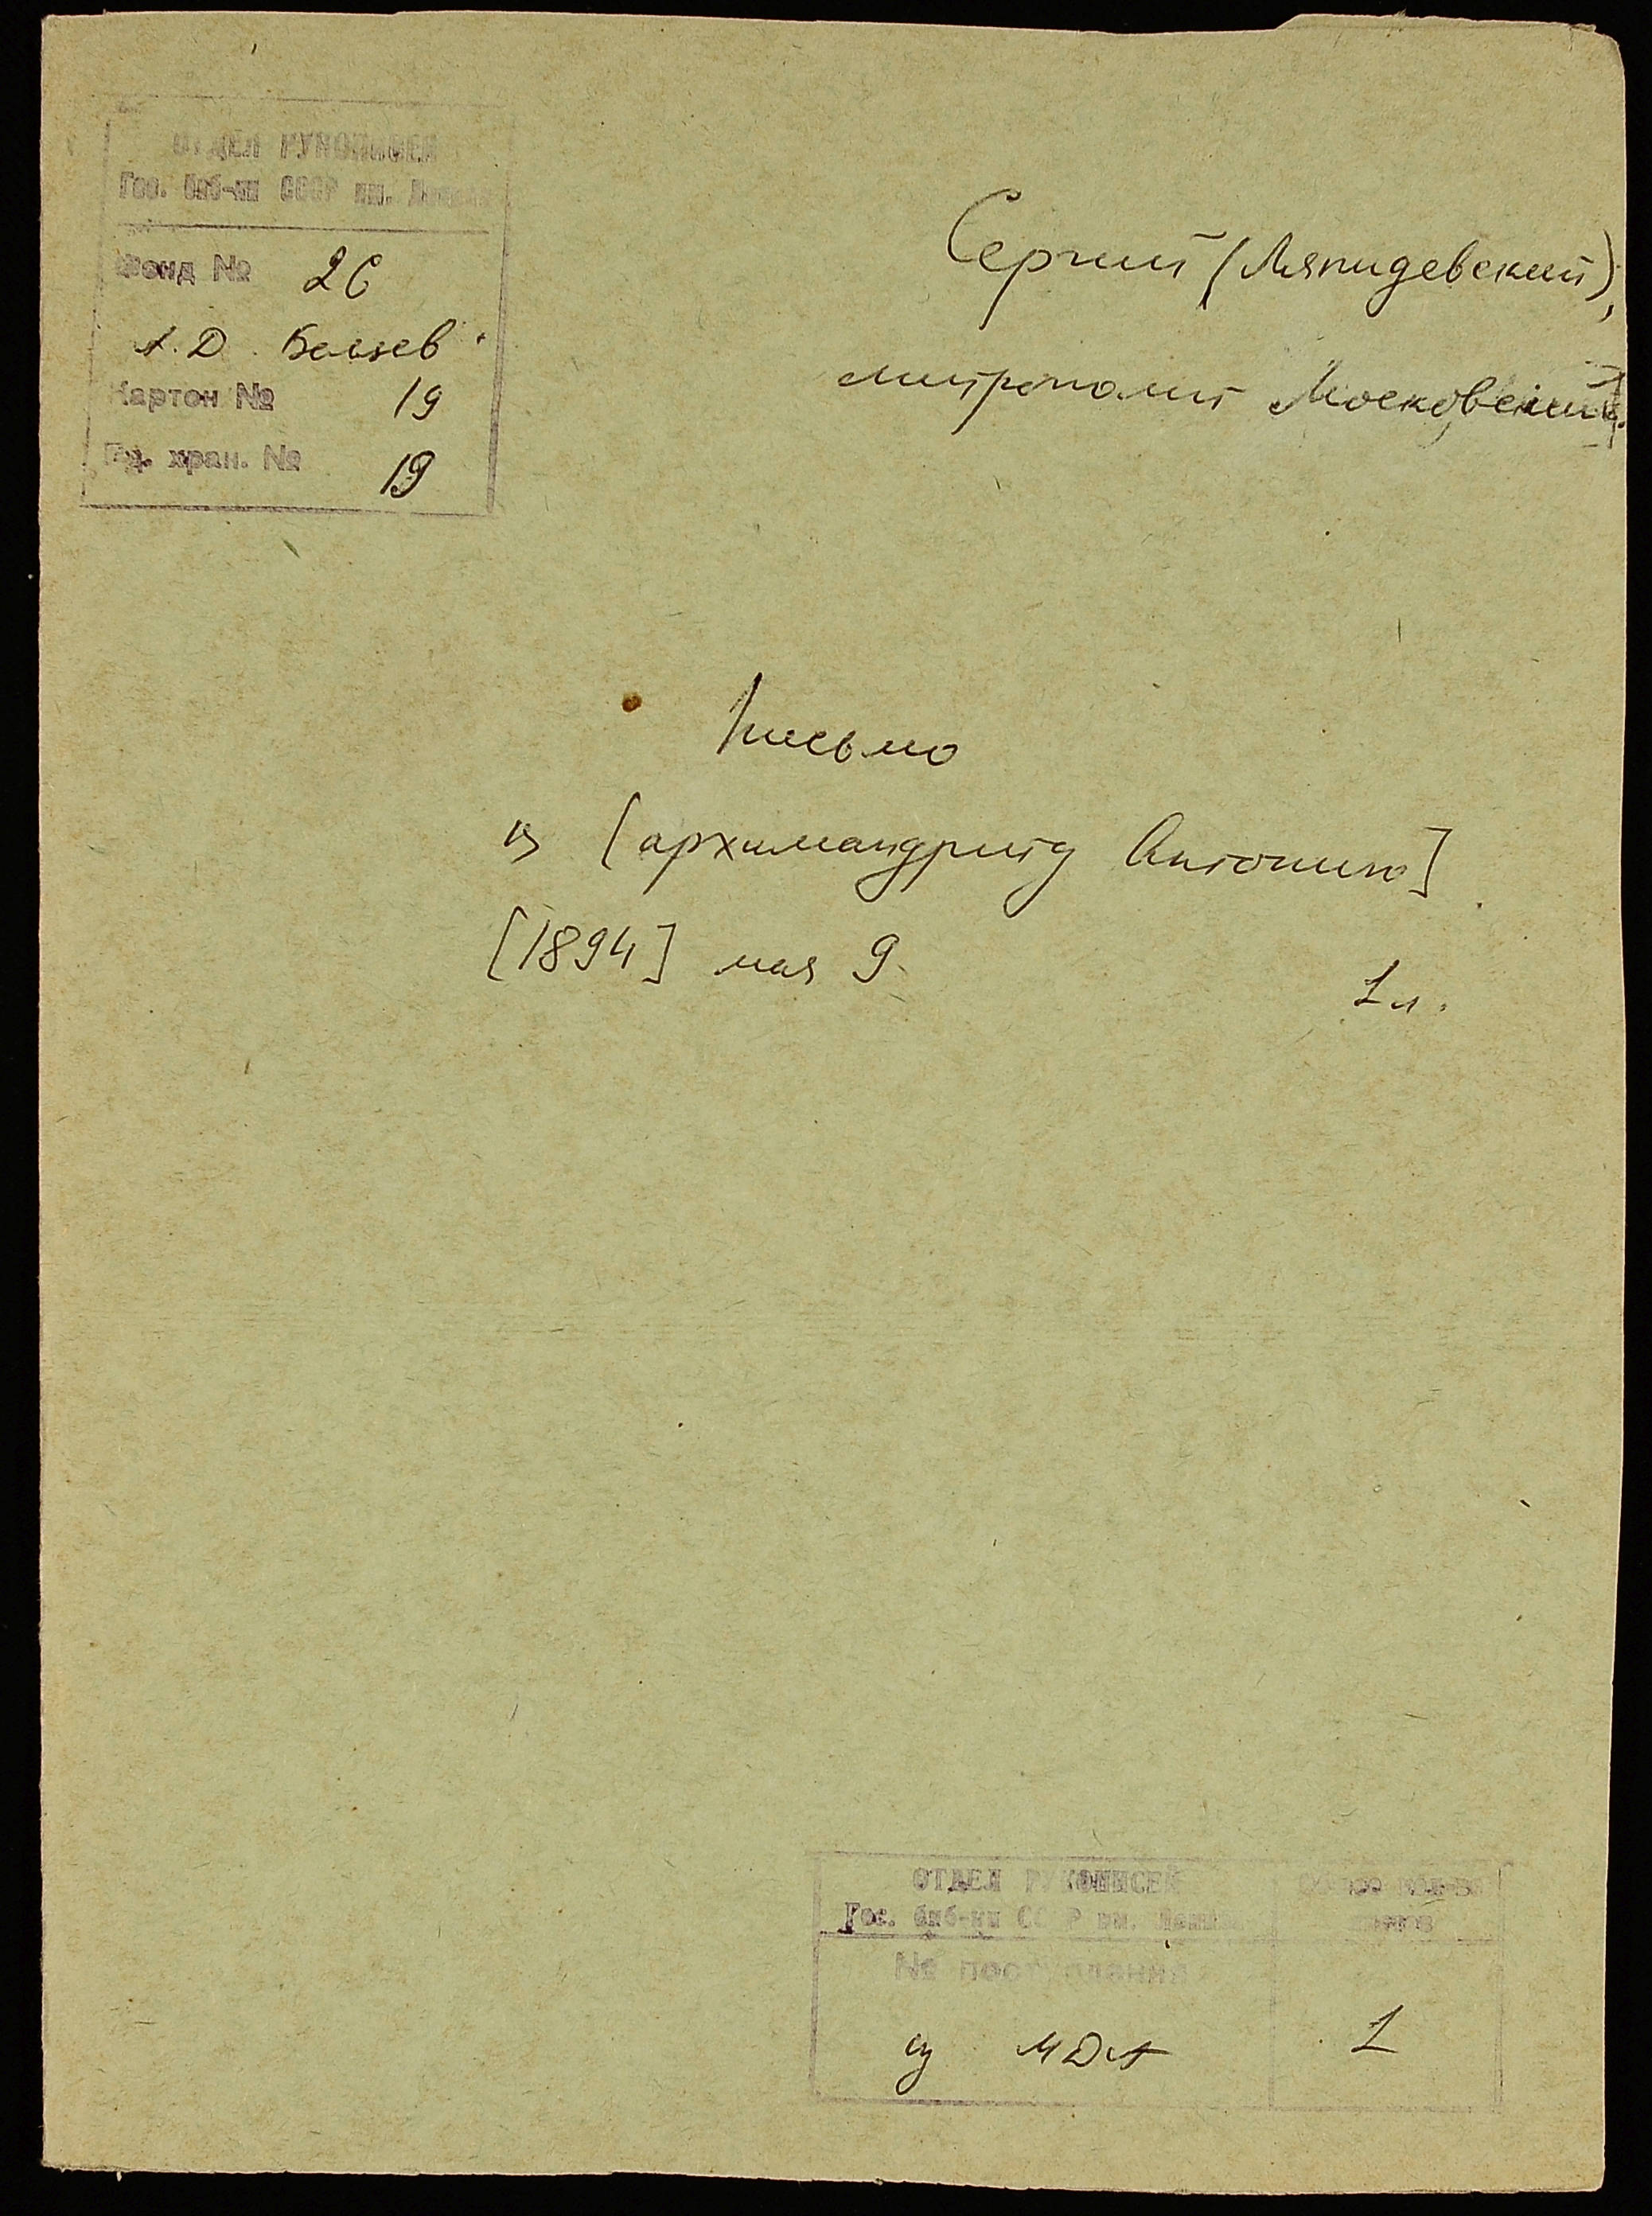 ОТДЕЛ РУКОПИСЕЙ
Гос. биб-ки СССР им. Ленина
Фонд № 26
А. Д. Беляев
Картон № 19
Ед. хран. № 19
Сергий (Ляпидевский),
митрополит Московский.
Письмо
к [архимандриту Антонию]
[1894] мая 9.
1 л.
ОТДЕЛ РУКОПИСЕЙ
Гос. биб-ки СССР им. Ленина
№ поступления
из МДА
Общее кол-во
листов
1